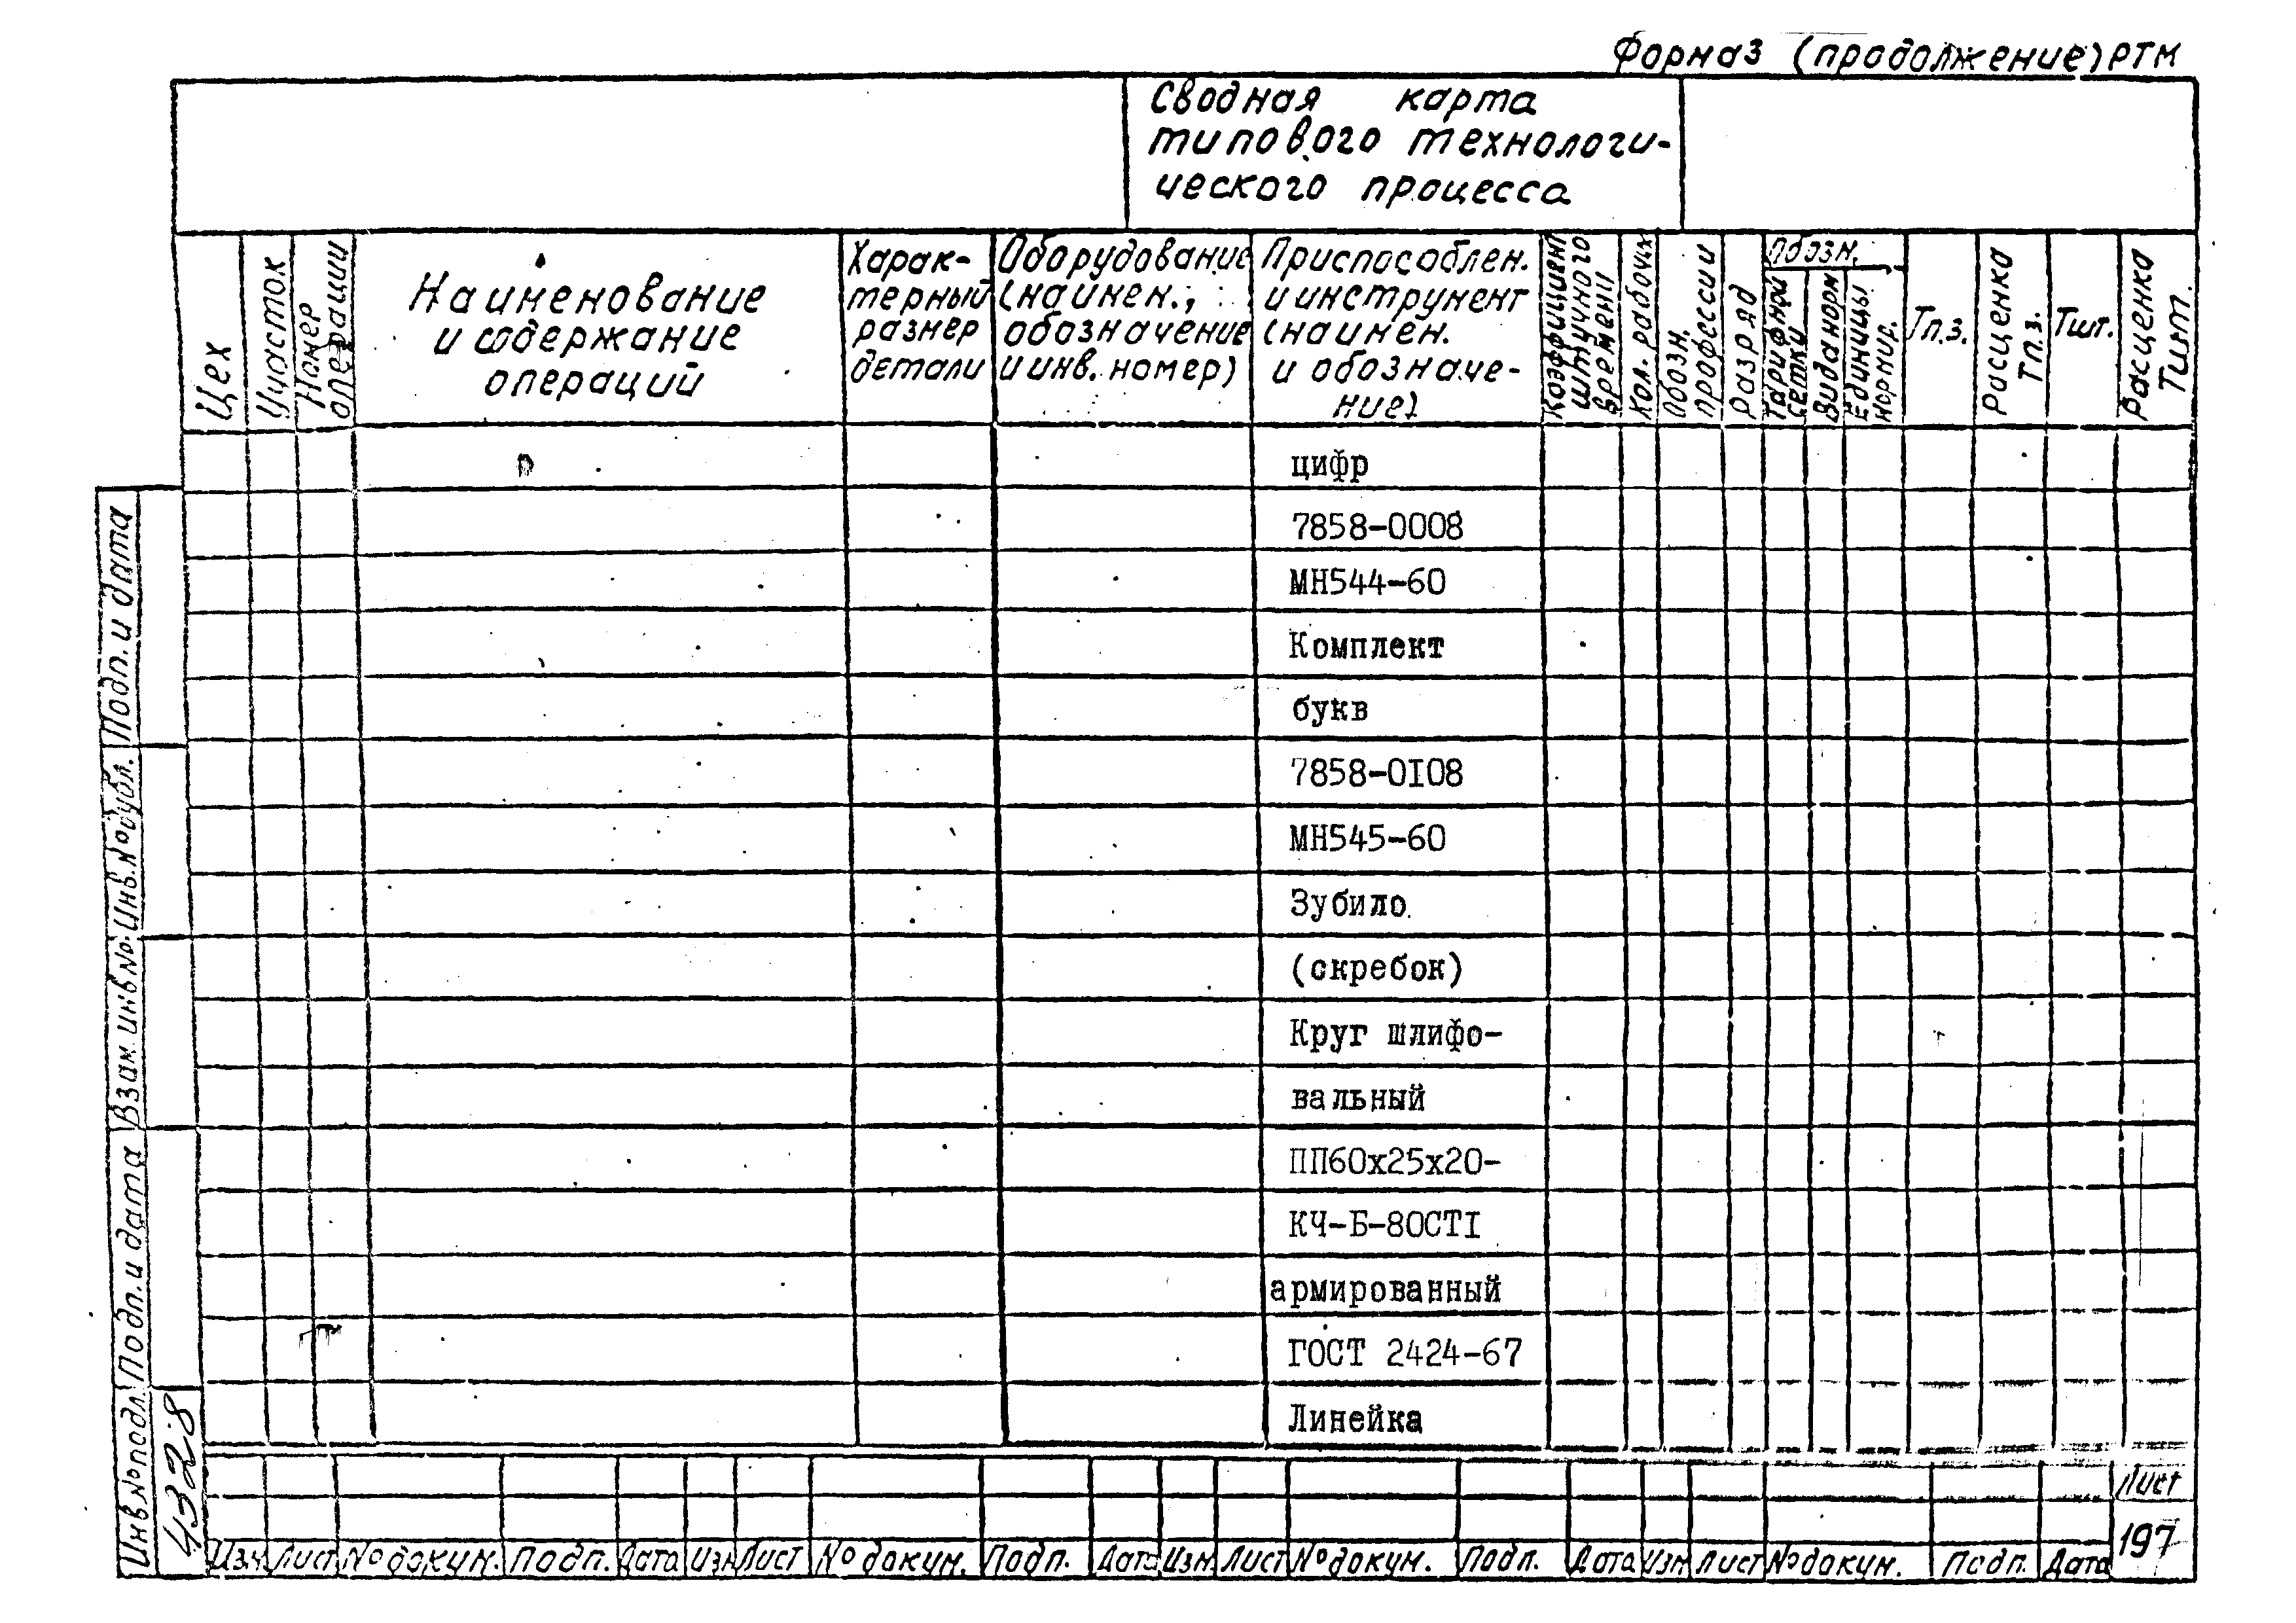 Форма 3 (продолжение) РТМ
Сводная карта
типового технологи-
ческого процесса
Цех
Участок
Номер
операции
Наименование
и содержание
операций
Харак-
терный
размер
детали
Оборудование
(наимен.,
обозначение
и инв. номер)
Приспособлен.
и инструмент
(наимен.
и обозначе-
ние)
Коэффициент
штучного
времени
Кол. рабочих
Обозн.
профессии
Разряд
Обозн.
Тарифной
сетки
Вида норм
Единицы
нормир.
Тп.з.
Расценка
Тп.з.
Тшт.
Расценка
Тшт.
цифр
7858-0008
МН544-60
Комплект
букв
7858-0I08
МН545-60
Зубило
(скребок)
Круг шлифо-
вальный
ПП60х25х20-
КЧ-Б-80СТI
армированный
ГОСТ 2424-67
Линейка
Подп. и дата
Инв. № дубл.
Взам. инв. №
Подп. и дата
Инв. № подл.
4328
Изм. Лист № докум. Подп. Дата Изм Лист № докум. Подп. Дата Изм. Лист № докум. Подп. Дата Изм. Лист № докум. Подп. Дата
Лист
197